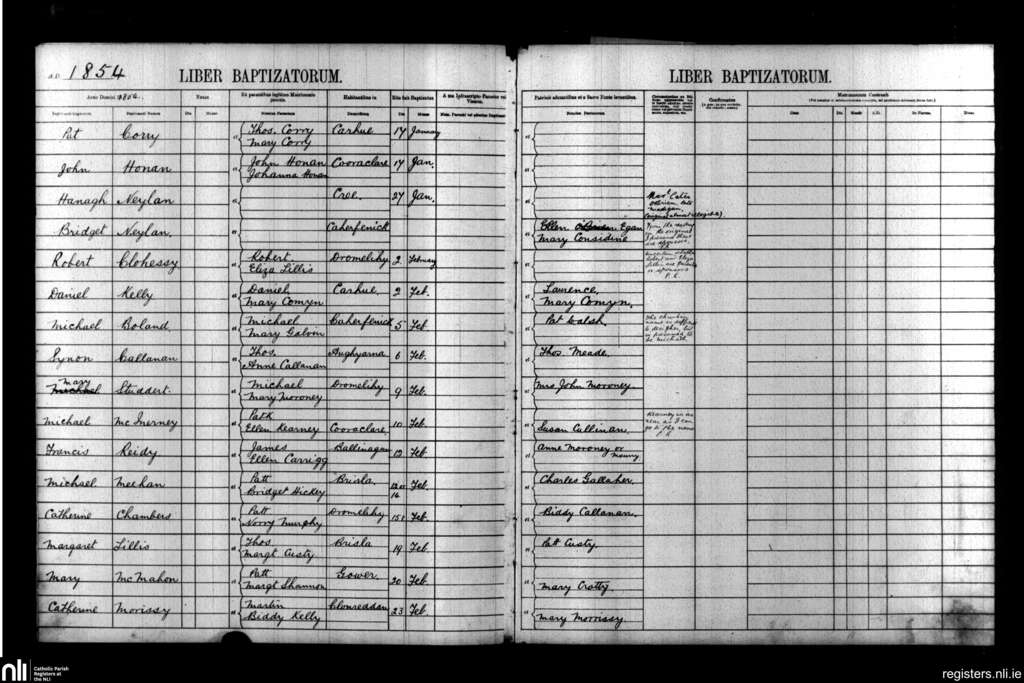 A.D. 1854 LIBER BAPTIZATORUM.
LIBER BAPTIZATORUM.
Anno Domini 1854. Natus Ex parentibus legitimo Matrimonio junctis. Habitantibus in Die fuit Baptizatus
Die Mense Nomina Parentum Die Mense
Patrinis adstantibus et a Sacro Fonte levantibus. Confirmatus Matrimonium Contraxit
Nomina Patrinorum Cum Die Mense A.D. In Paroec. Notae.
Pat Corry Thos. Corry Carhue 17 January
Mary Corry
John Honan John Honan Cooraclare 17 Jan.
Johanna Honan
Hanagh Neylan Cree. 27 Jan.
O'Brien
Bridget Neylan. Caherfenick Ellen Egan From the
Mary Considine the original
Robert Clohessy Robert Dromelihy 2 February
Eliza Lillis or sponsors
P.K.
Daniel Kelly Daniel Carhue 2 Feb. Lawrence
Mary Comyn Mary Comyn.
Michael Boland Michael Caherfenick 5 Feb. Pat Walsh. The
Mary Galvin to decipher, but
be Michael
Synon Callanan Thos. Aughyarna 6 Feb. Thos. Meade.
Anne Callanan
Mary
Michael Studdert. Michael Dromelihy 9 Feb. Mrs John Moroney.
Mary Moroney
Michael McInerney Patk Cooraclare 10 Feb. Kearney is as
Ellen Kearney Susan Cullinan near as I can
go to the name
Francis Reidy James Ballinagan 12 Feb. Anne Moroney or
Ellen Carrigg
Michael Meehan Patt Brisla 13 or Feb. Charles Gallaher.
Bridget Hickey 14
Catherine Chambers Patt Dromelihy 15 Feb. Biddy Callanan.
Norry Murphy
Margaret Lillis Thos Brisla 19 Feb. Patt Custy
Margt Custy
Mary McMahon Patt Gower. 20 Feb.
Margt Shannon Mary Crotty.
Catherine Morissy Martin Clonreddan 23 Feb.
Biddy Kelly Mary Morrissy.
nli Catholic Parish
Registers at
the NLI
registers.nli.ie